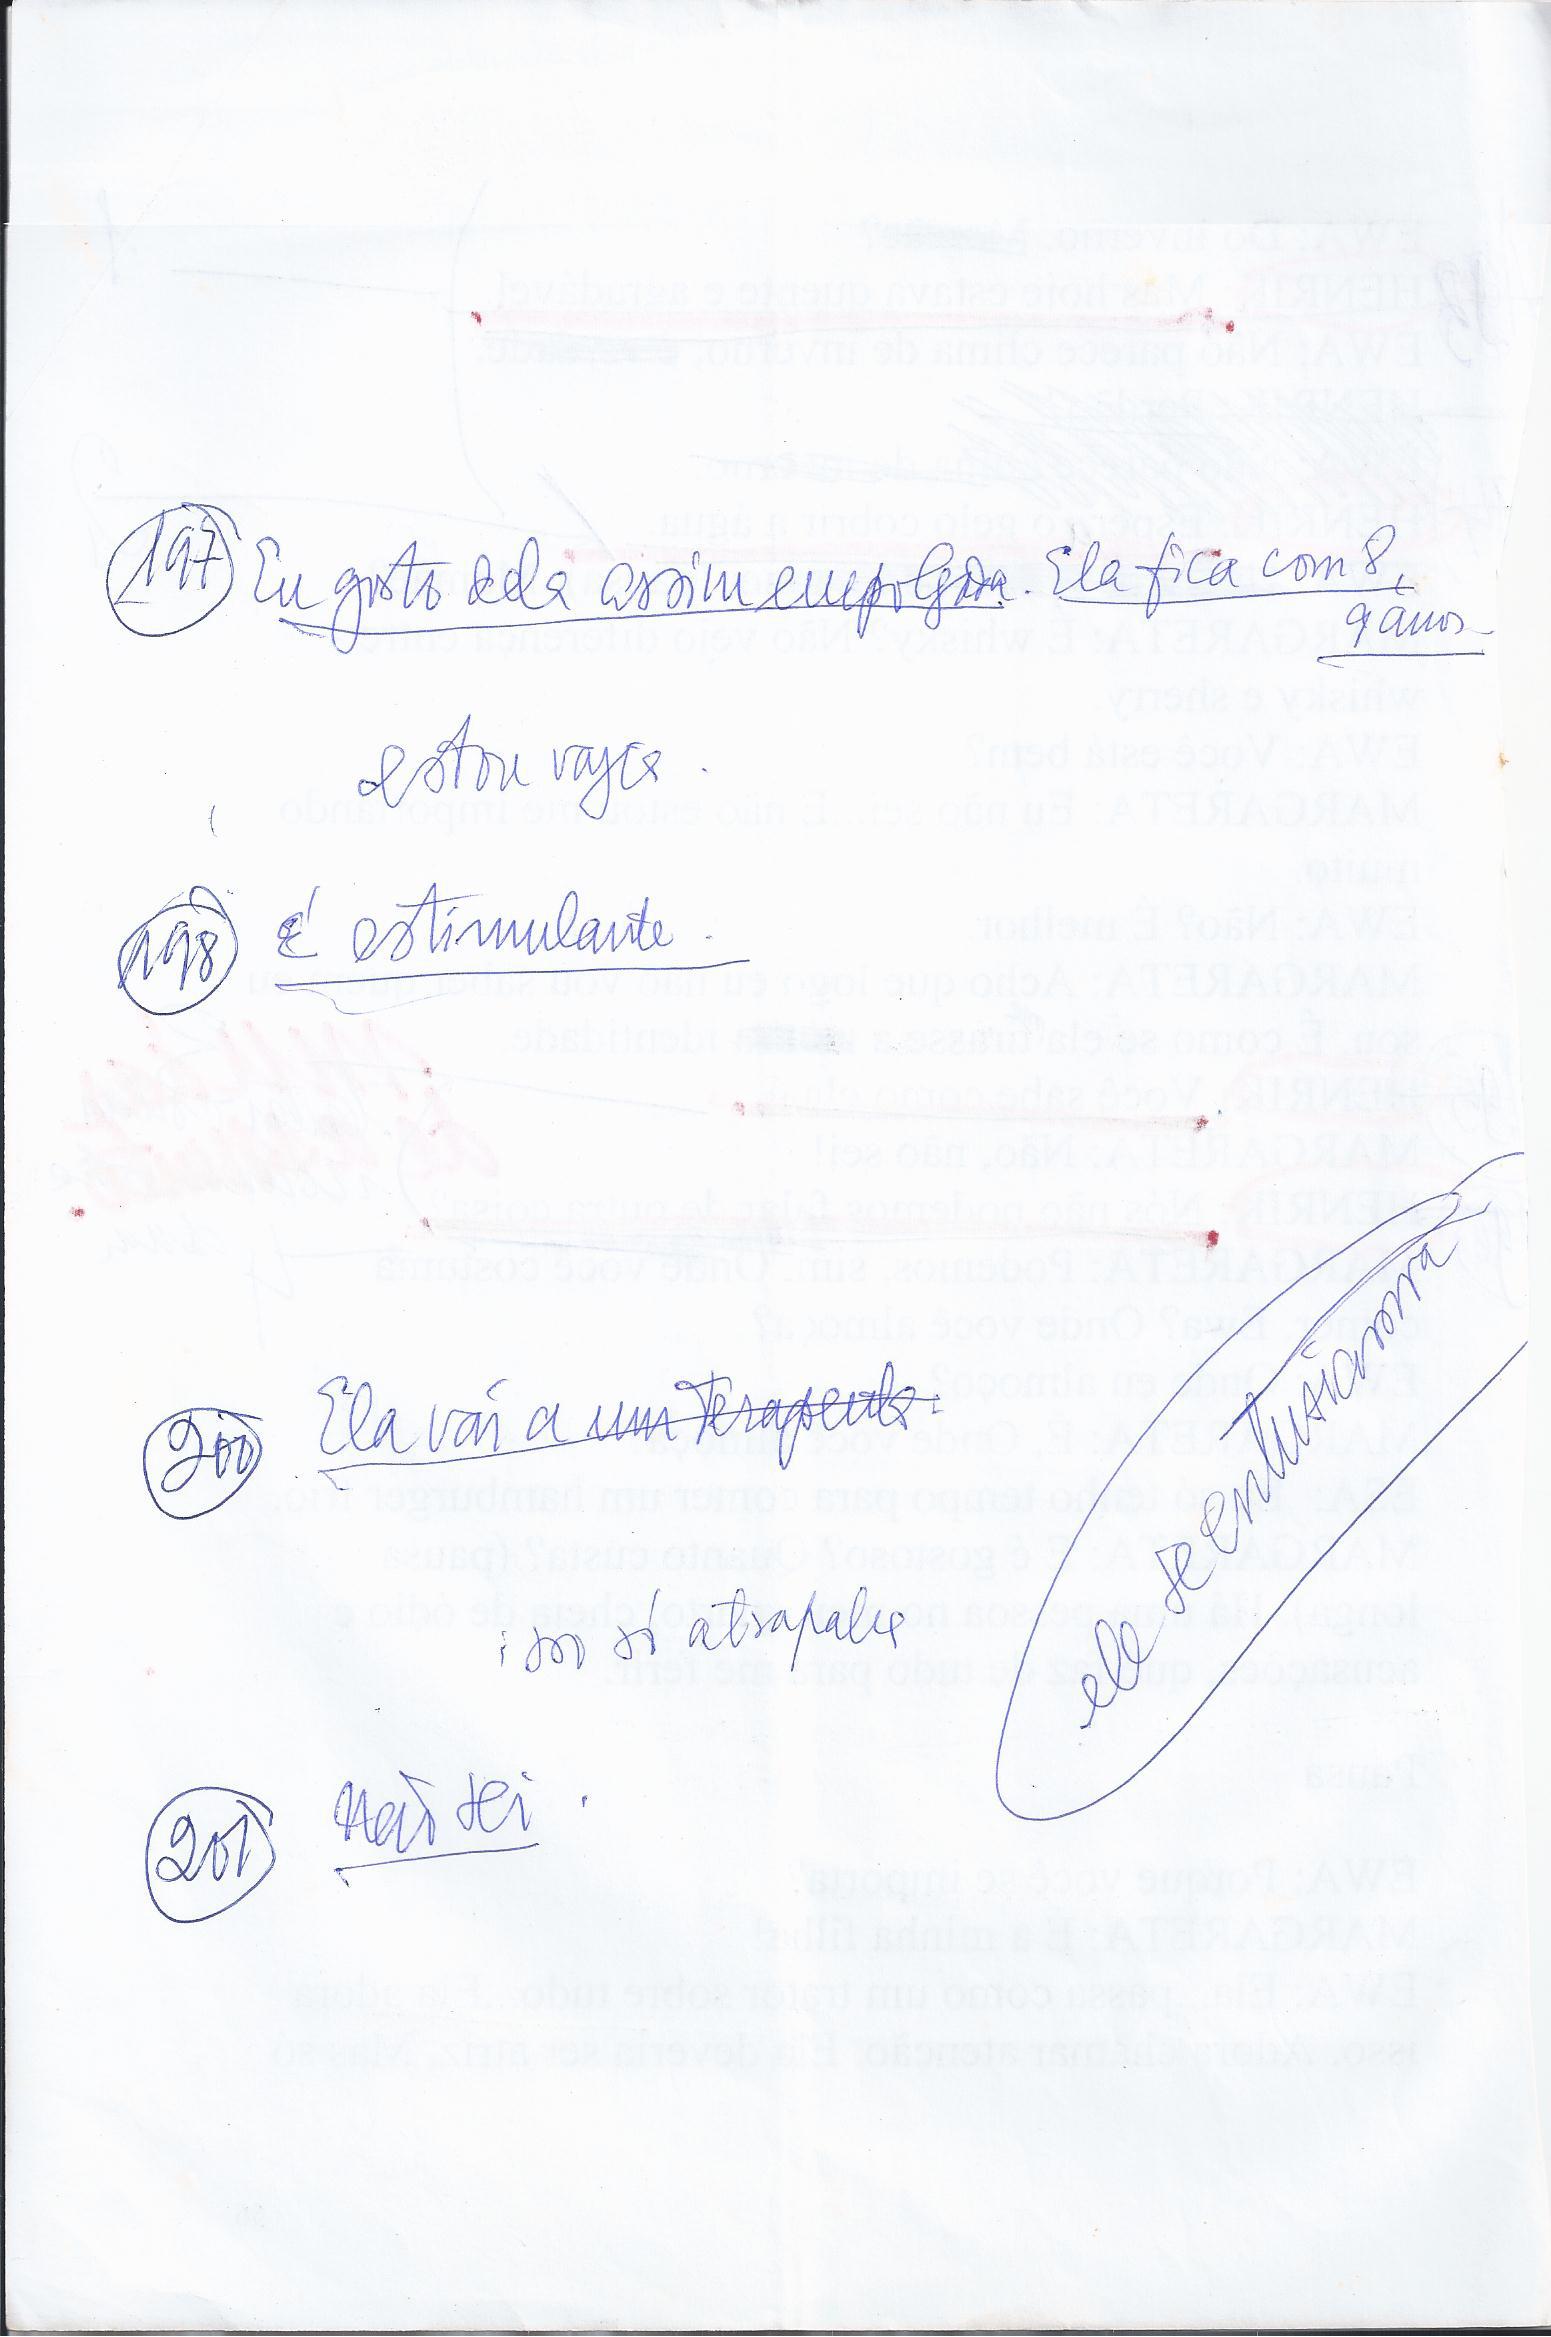 197 Eu gosto dela assim empolgada. Ela fica com 8,
9 anos
estou
198 É estimulante.
200 Ela vai a um terapeuta.
isso só atrapalha
ele se entusiasma
201 Não sei.